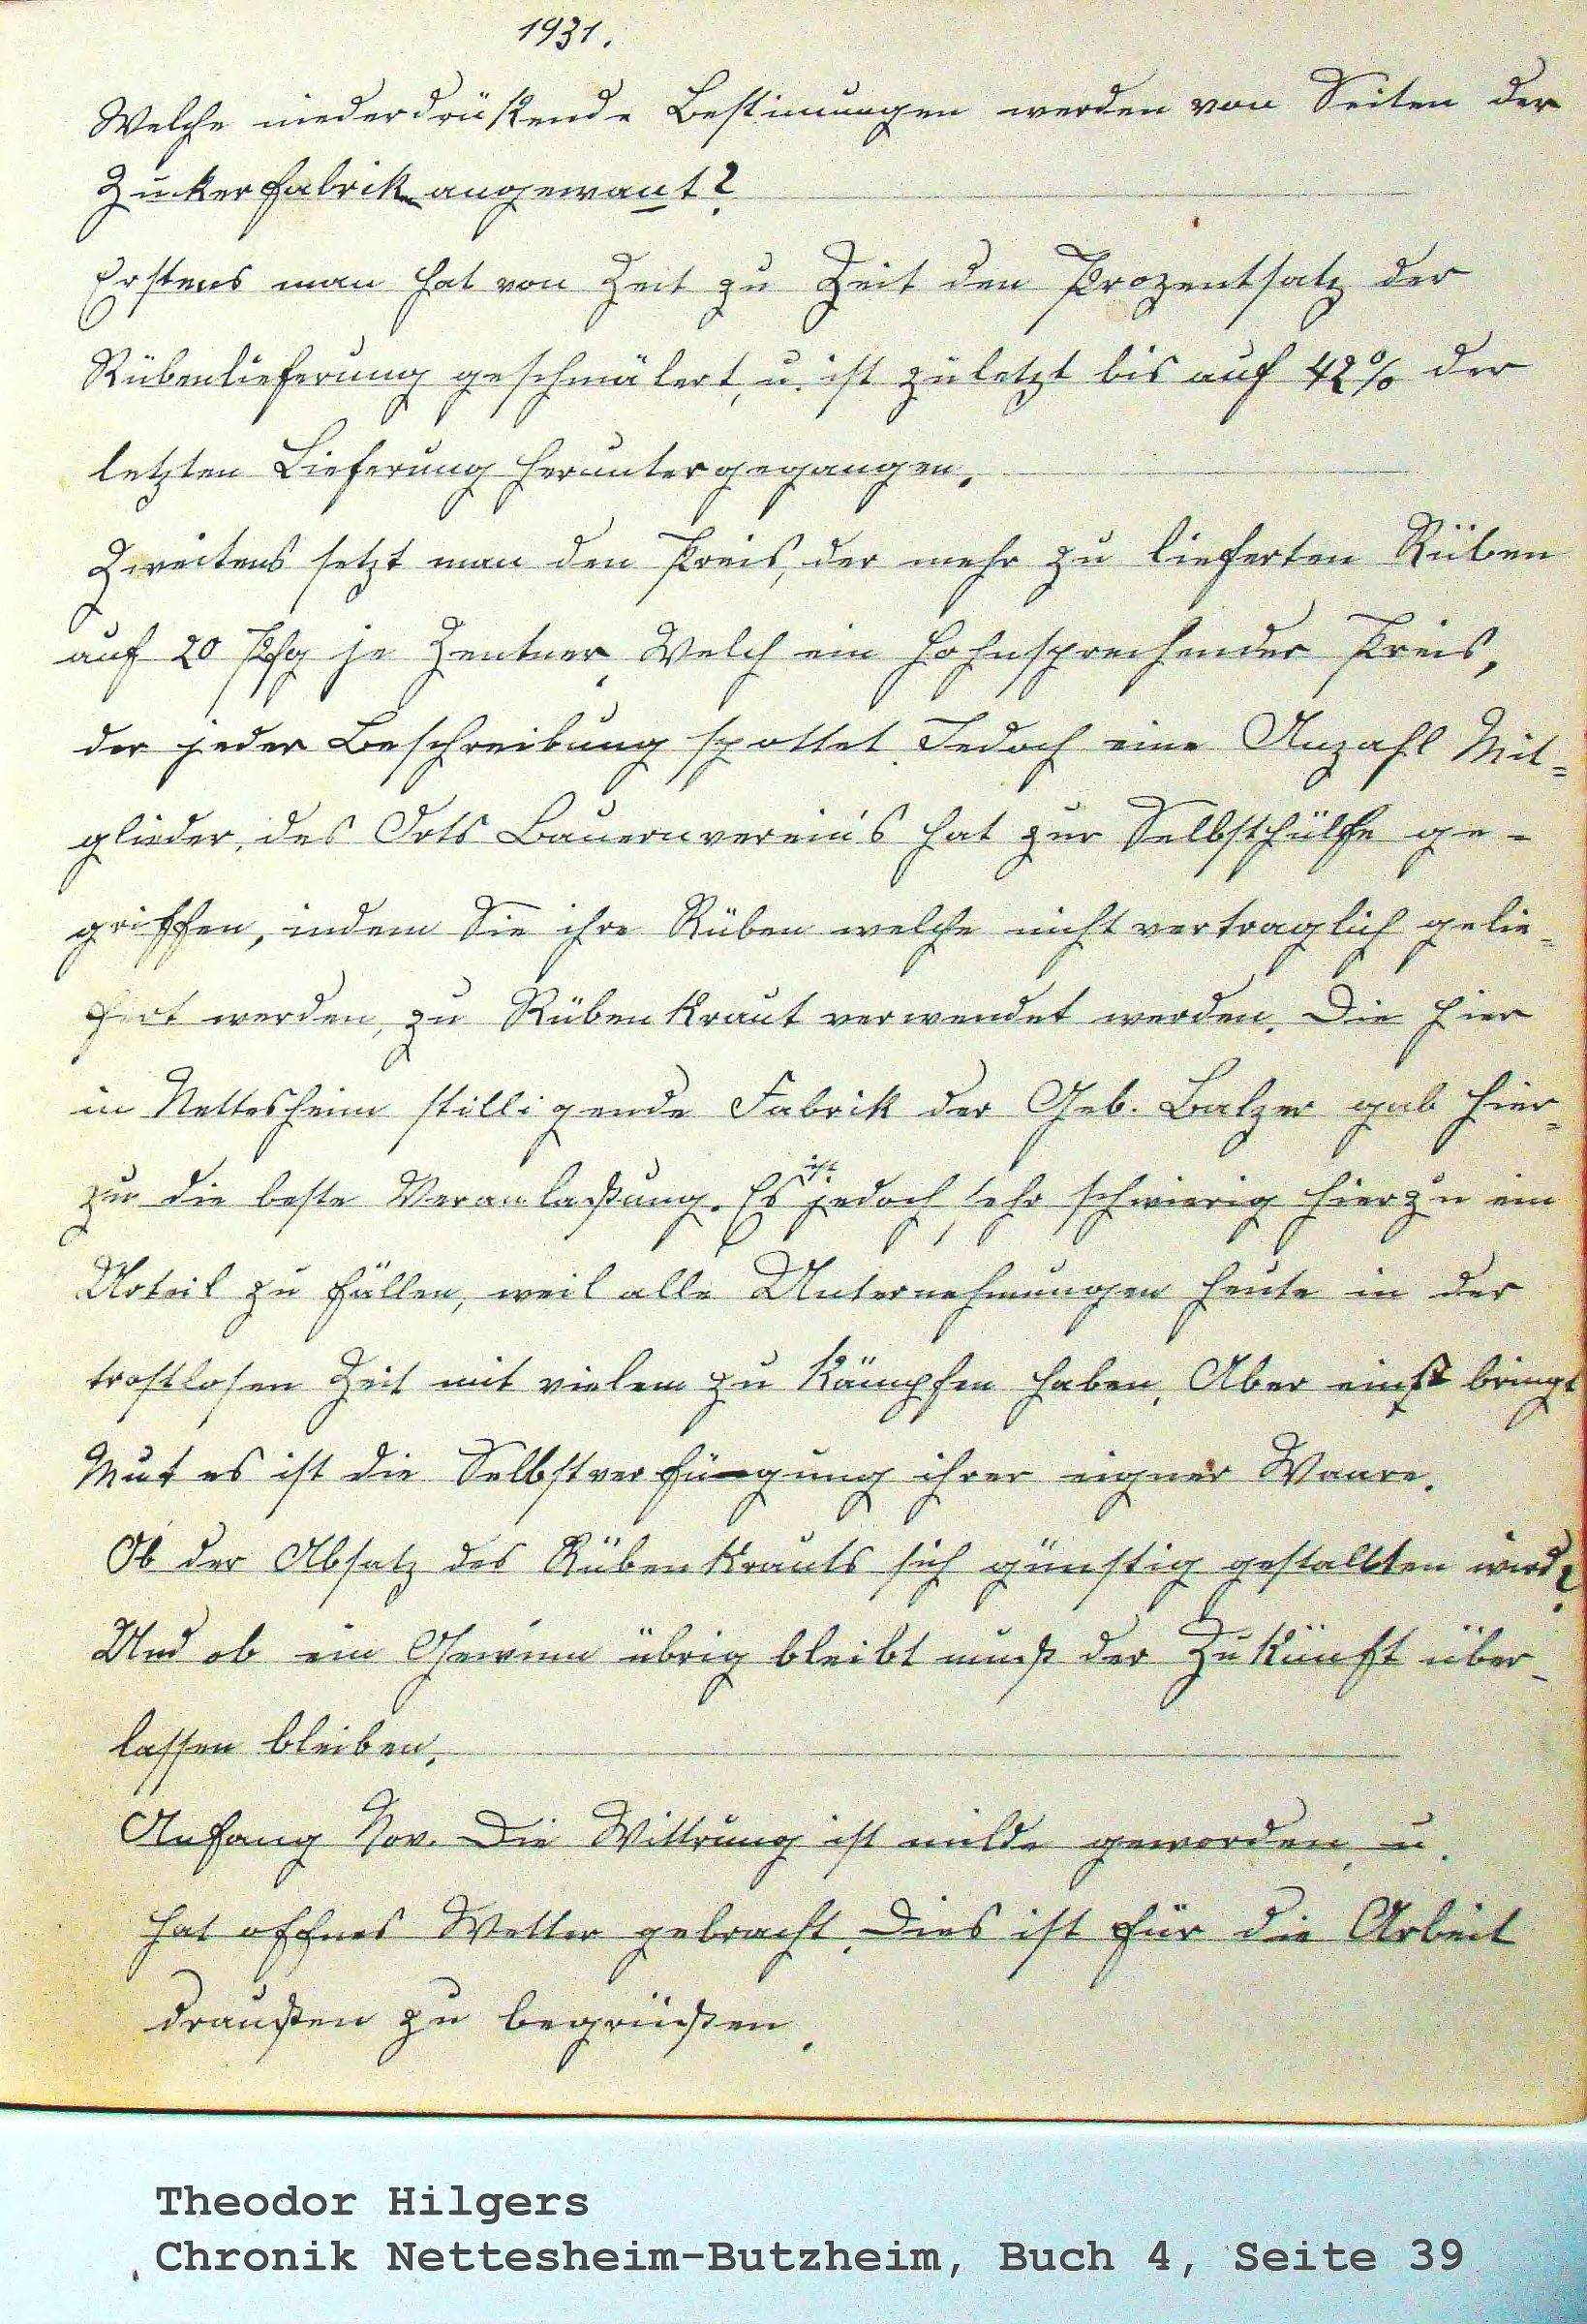 1931.
Welche niederdrükende Bestimungen werden von Seiten der
Zukerfabrik angewant?
Erstens man hat von Zeit zu Zeit den Prozentsatz der
Rübenlieferung geschmälert, u. ist zuletzt bis auf 42% der
letzten Lieferung heruntergegangen.
Zweitens setzt man den Preis, der mehr zu lieferten Rüben
auf 20 Pfg je Zentner. Welch ein hohnsprechender Preis,
der jeder Beschreibung spottet. Jedoch eine Anzahl Mit=
glieder, des Orts Bauernverein's hat zur Selbsthülfe ge-
griffen, indem Sie ihre Rüben welche nicht vertraglich gelie=
fert werden, zu Rübenkraut verwendet werden. Die hier
in Nettesheim stilligende Fabrik der Geb. Balzer gab hier=
zu die beste Veranlaßung. Es ist jedoch sehr schwierig hierzu ein
Urteil zu fällen, weil alle Unternehmungen heute in der
trostlosen Zeit mit vielem zu kämpfen haben. Aber einst bringt
Mut es ist die Selbstverfügung ihrer eigner Waare.
Ob der Absatz des Rübenkrauts sich günstig gestallten wird?
Und ob ein Gewinn übrig bleibt muß der Zukunft über-
lassen bleiben.
Anfang Nov. Die Wittrung ist milde geworden, u.
hat offnes Wetter gebracht. Dies ist für die Arbeit
draußen zu begrüßen.
Theodor Hilgers
Chronik Nettesheim-Butzheim, Buch 4, Seite 39